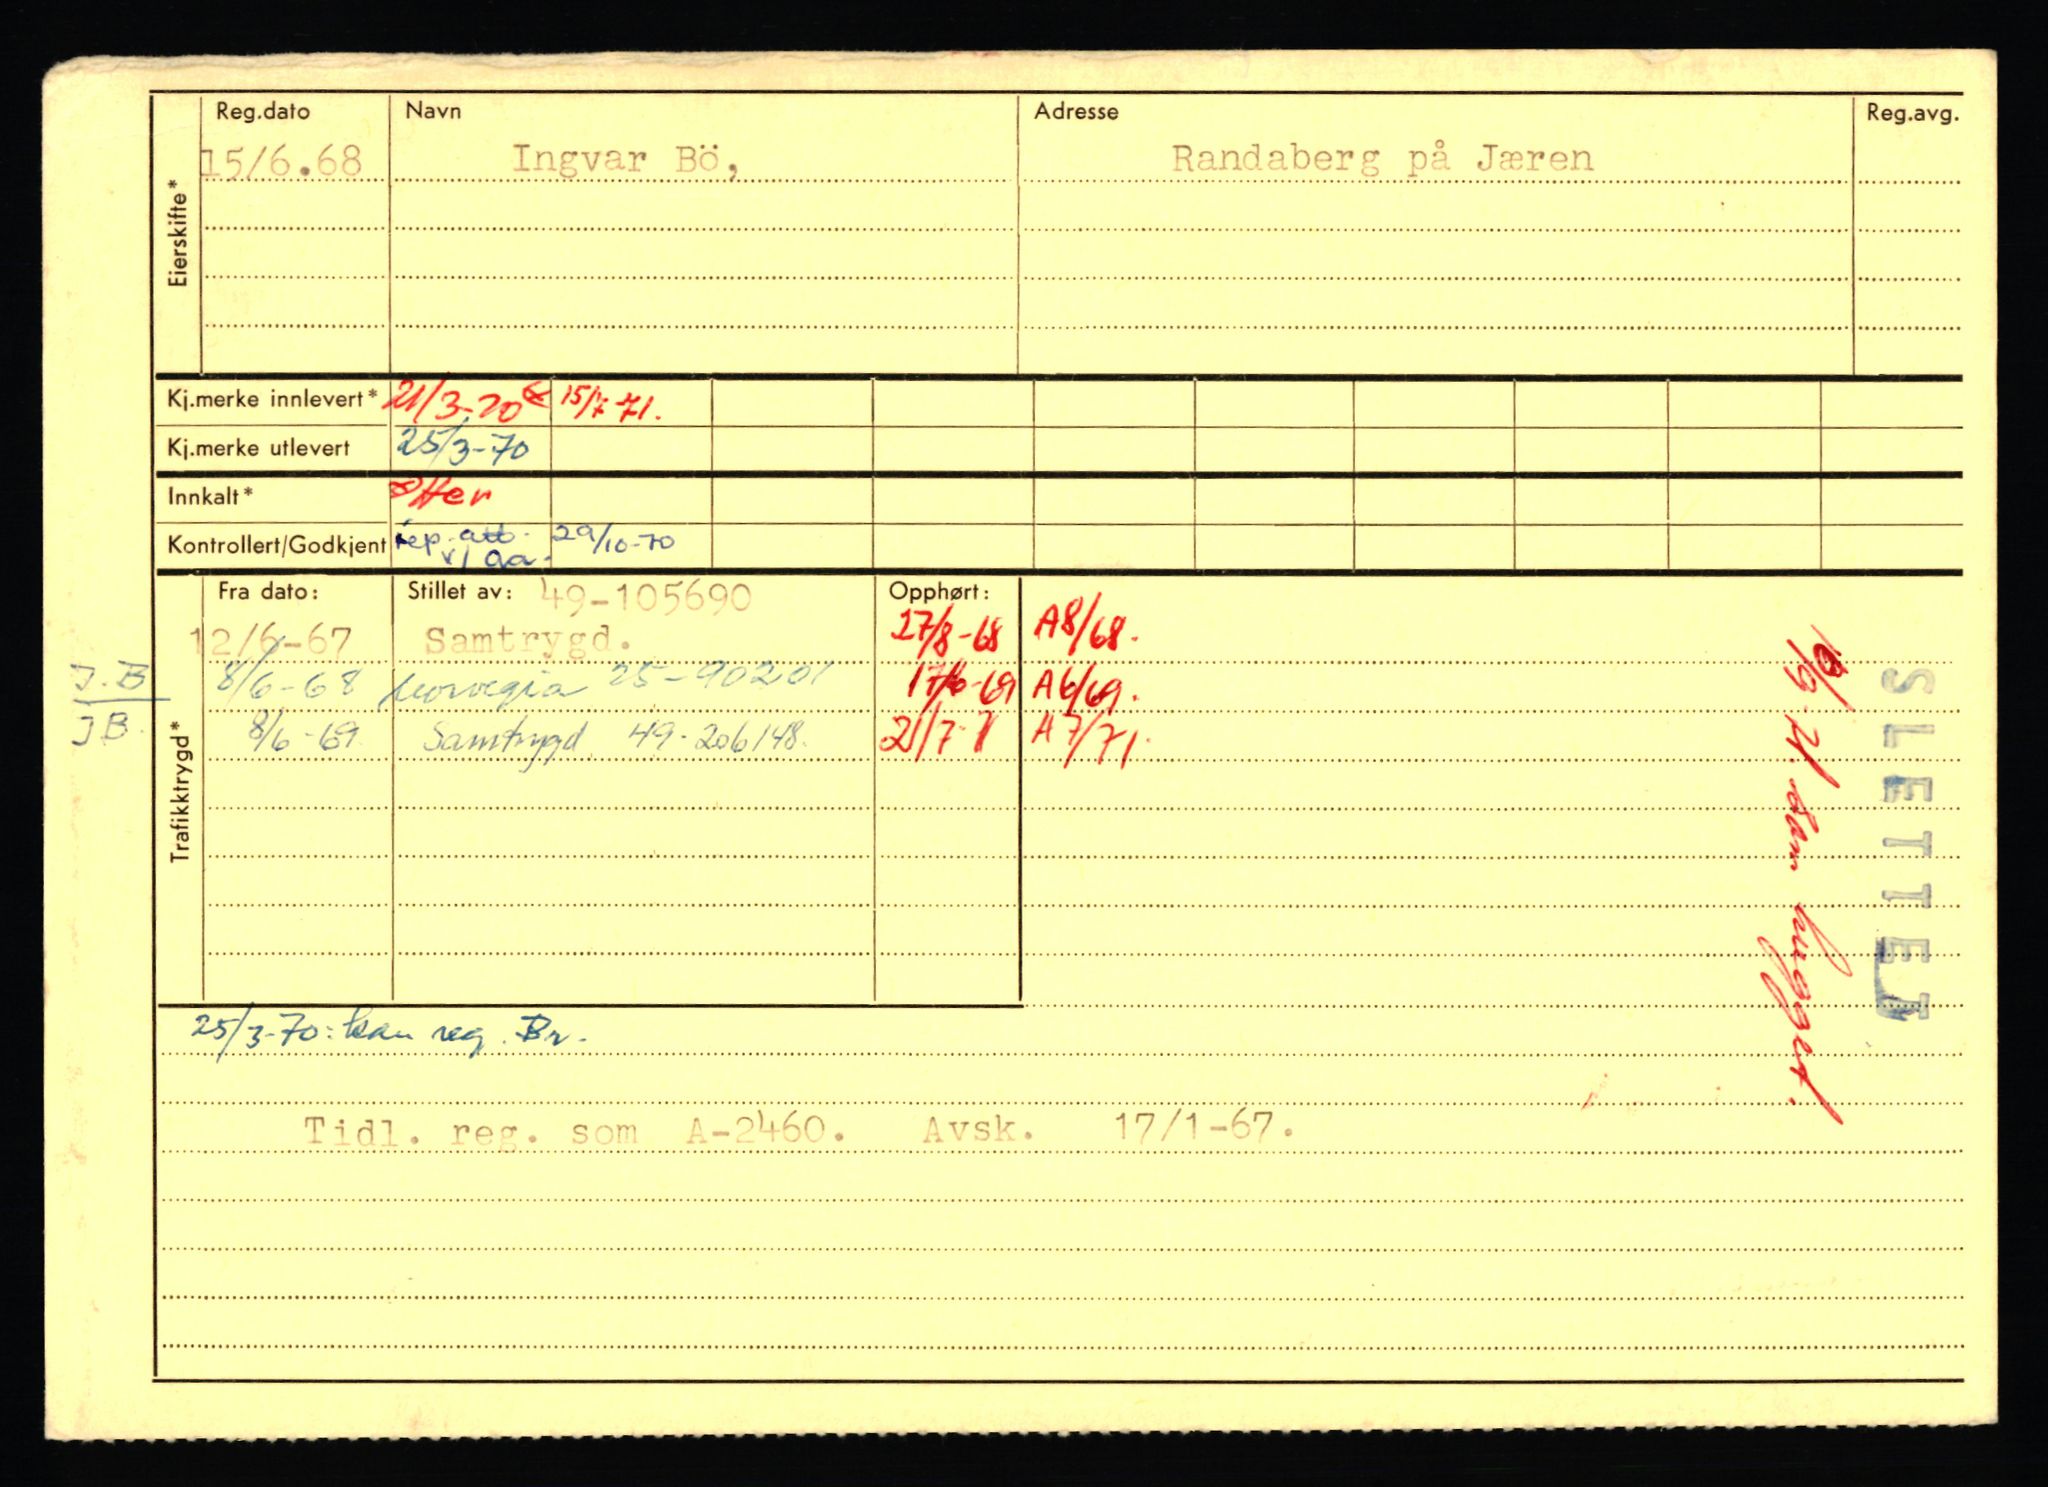 Reg.dato Navn Adresse Reg.avg.
Eierskifte*
15/6.68 Ingvar Bö, Randaberg på Jæren
Kj.merke innlevert* 21/3-70 15/7-71.
Kj.merke utlevert 25/3-70
Innkalt* Etter
Kontrollert/Godkjent rep. att. 29/10-70
v/ Ga.
Trafikktrygd*
Fra dato: Stillet av: 49-105690 Opphørt:
12/6-67 Samtrygd. 27/8-68 A8/68.
J.B 8/6-68 Norvegia 25-90201 17/6-69 A6/69.
JB. 8/6-69. Samtrygd 49-206148. 21/7-71 A7/71.
25/3-70: kan reg. Br.
Tidl. reg. som A-2460. Avsk. 17/1-67.
71. Som hugget.
SLETTET